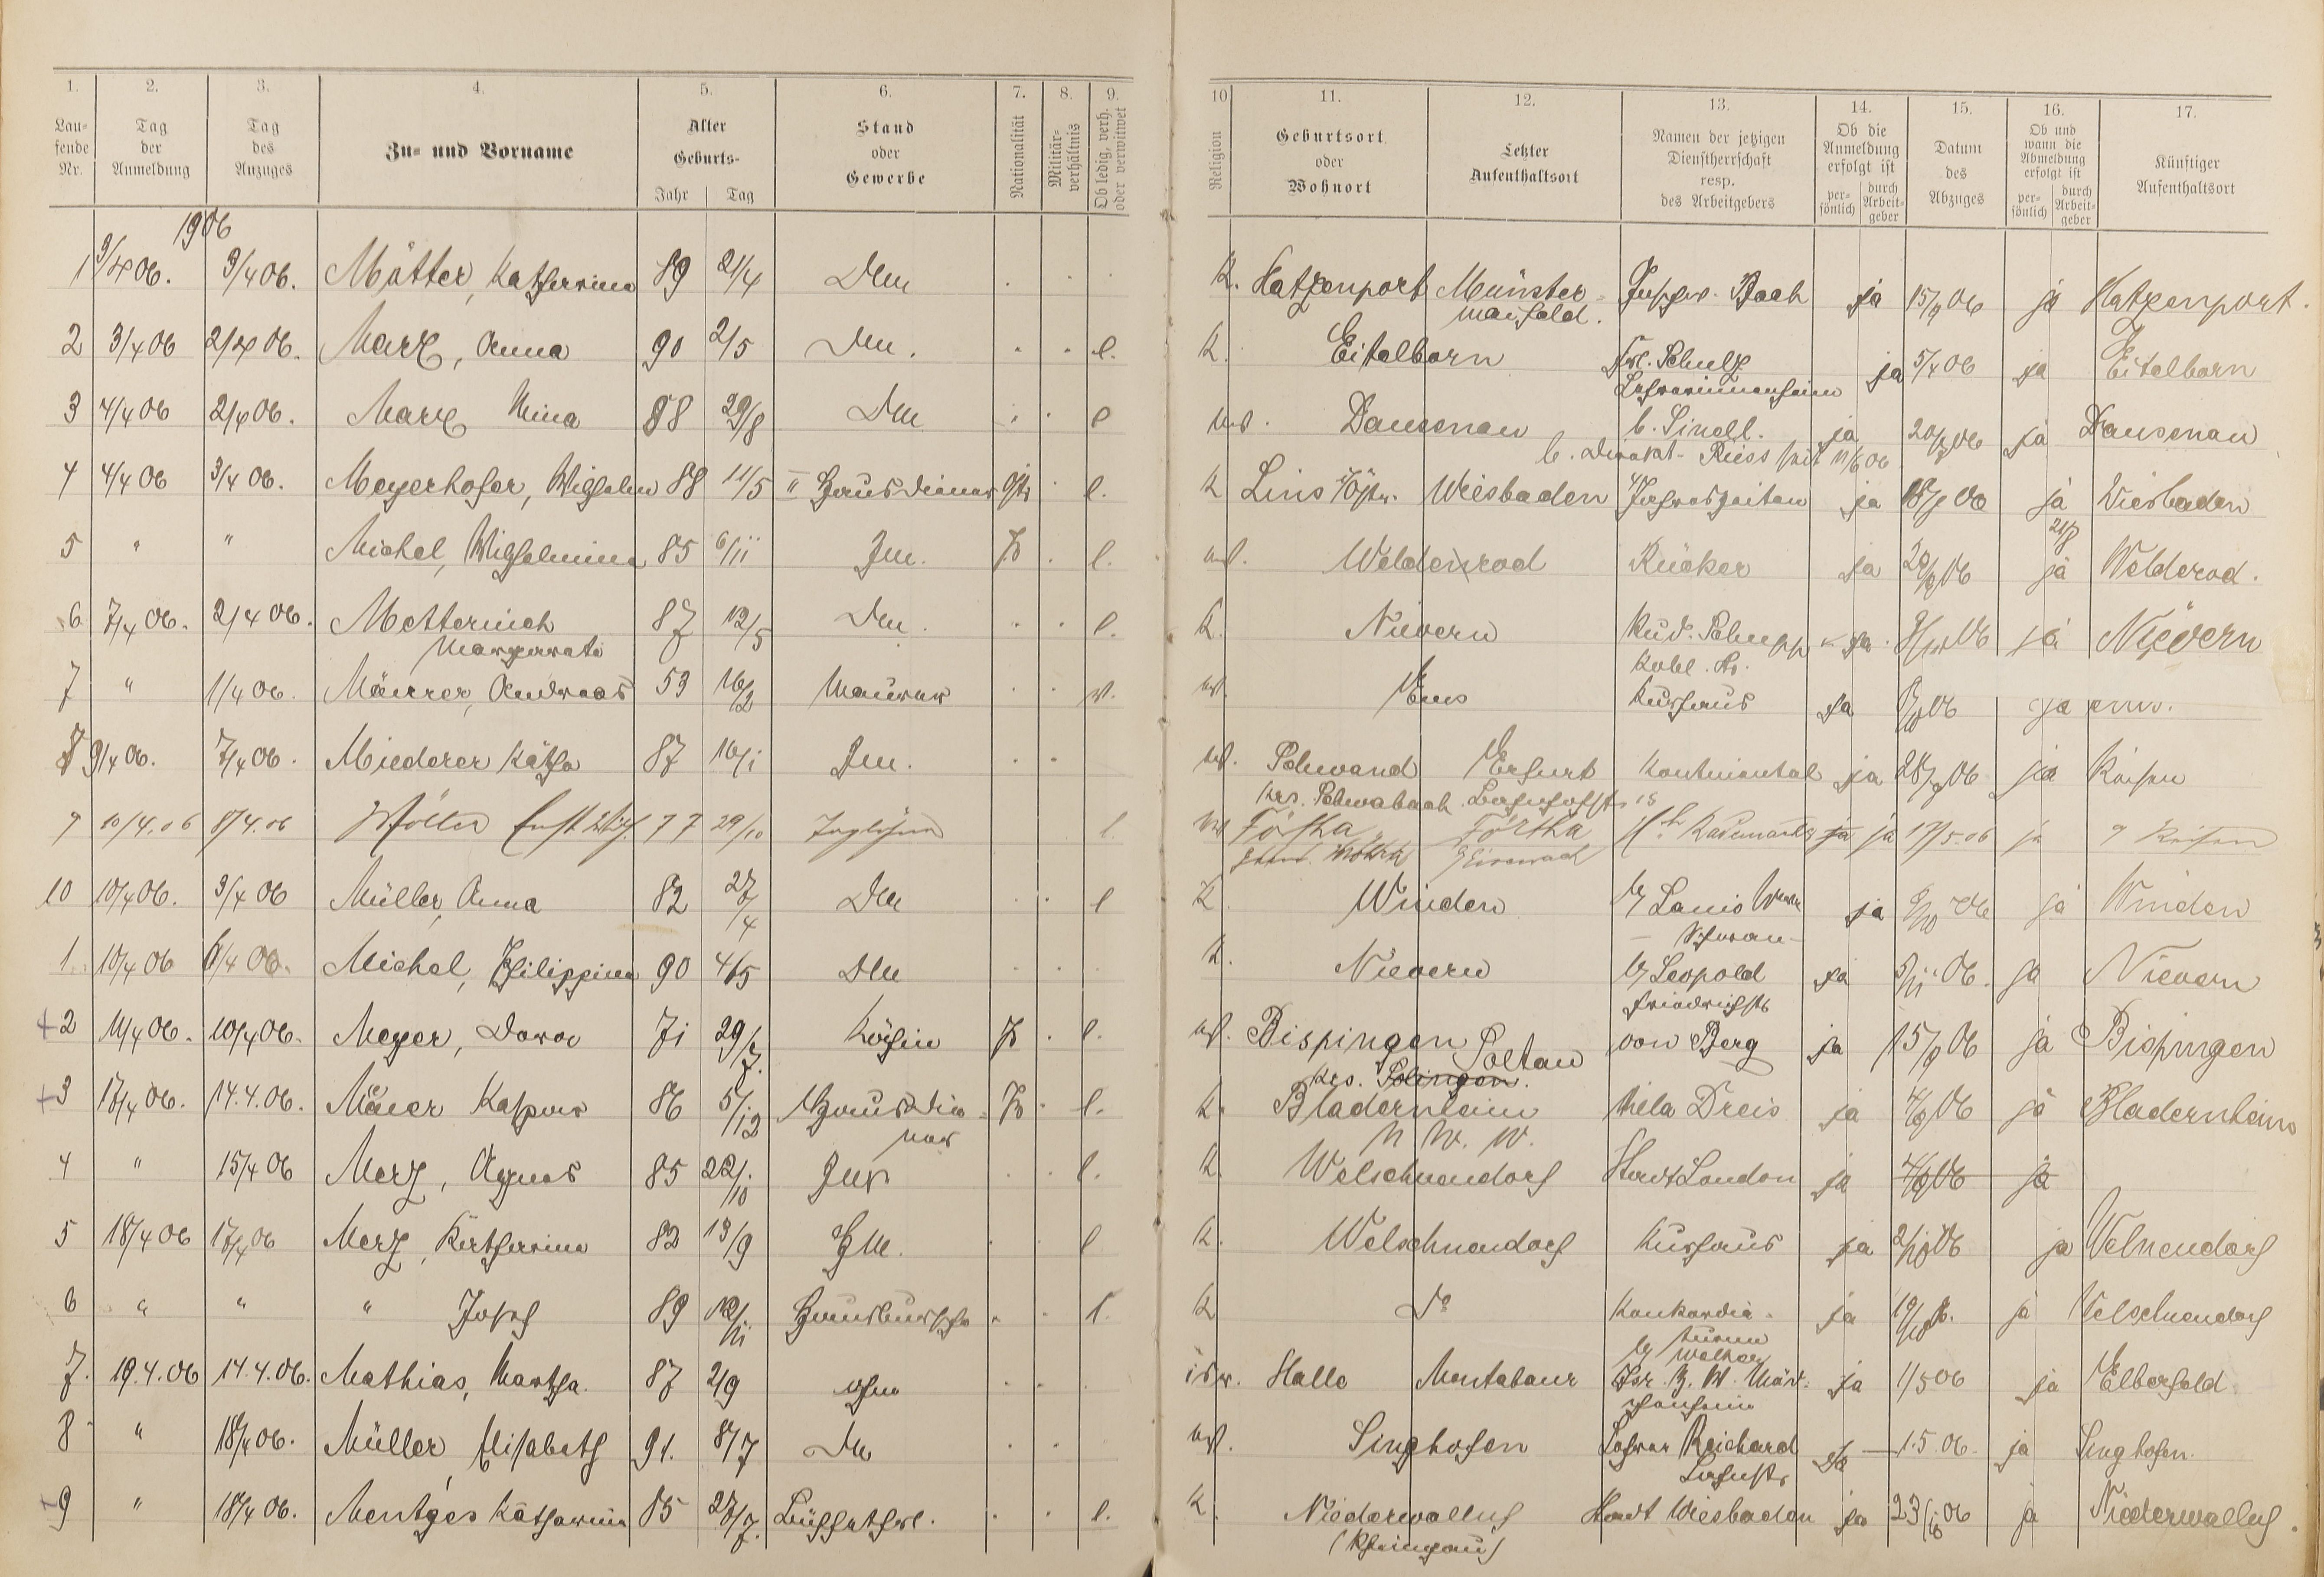 1. 2. 3. 4. 5. 6. 7. 8. 9. 10 11. 12. 13. 14. 15. 16. 17.
Laufende Nr. Tag der Anmeldung Tag des Anzuges Zu- und Vorname Alter Geburts- Jahr Tag Stand oder Gewerbe Nationalität Militär-verhältnis Ob ledig, verh. oder verwitwet Religion Geburtsort oder Wohnort Letzter Aufenthaltsort Namen der jetzigen Dienstherrschaft resp. des Arbeitgebers Ob die Anmeldung erfolgt ist per-sönlich durch Arbeit-geber Datum des Abzuges Ob und wann die Abmeldung erfolgt ist per-sönlich durch Arbeit-geber Künftiger Aufenthaltsort
1906
1 3/4 06. 3/4 06. Mötter, Katharina 89 21/4 Dm K. Hatzenport Münster- Bach ja 15/9 06 ja Hatzenport.
maifeld.
2 3/4 06 2/4 06. Marx, Anna 90 2/5 Dm. l. K. Eitelborn Frl. Schulz ja 5/4 06 ja Eitelborn
Lehrerinnenheim
3 4/4 06 2/4 06. Marx Mina 88 29/8 Dm l Dausenau b. Linell. ja 20/9 06 ja Dausenau
b. Direkt. Reiss seit 11/6 06
4 4/4 06 3/4 06. Meyerhofer, Wilhelm 88 11/5 II Hausdiener l. K Lins Wiesbaden 4 Jahreszeiten ja 06 ja Wiesbaden
5 " " Michel, Wilhelmina 85 6/11 Zm. P. l. Weldenrod Rücker ja 20/9 06 ja Welderod.
6 7/4 06. 2/4 06. Metternich 87 12/5 Dm. l. K. Nievern Rud. Schupp ja. 06 ja Nievern
Margareta Kobl. Str.
7 " 1/4 06. Mäurer, Andreas 53 16/2 Maurer v. Ems Kurhaus ja 06 ja ems.
8 9/4 06. 7/4 06. Miederer Käthe 87 16/1 Zm. Schwand Erfurt Kontinental ja 28/9 06 ja Reisen
Krs. Schwabach Bahnhofstr. 15
9 10/4.06 8/4.06 Mölter Ernst Wilh. 77 29/10 Taglöhner l. Förtha Förtha ja ja 17/5.06 ja Reisen
10 10/4 06. 3/4 06 Müller, Anna 82 27/4 Dm l K. Winden b/ Louis ja 06 ja Winden
1. 10/4 06 6/4 06. Michel, Philippina 90 4/5 Dm K. Nievern b/ Leopold ja 5/11 06. ja Nievern
Friedrichstr
+2 11/4 06. 10/4 06. Meyer, Dora 71 29/7. Köchin P. l. Bispingen von Berg ja 15/9 06 ja Bispingen
Krs. Solingen. Soltau
+3 17/4 06. 14.4.06. Maier Kaspar 86 5/12 Hausdie- P. l. K. Bladernheim Villa Dreis ja 4/9 06 ja Bladernheim
ner N W. W.
4 " 15/4 06 Merz, Agnes 85 22/10 l. K. Welschnendorf Stadt London ja 4/9 06 ja
5 18/4 06 17/4 06 Merz, Katharina 82 13/9 Zm. l K. Welschnendorf Kurhaus ja 2/10 06 ja Welnendorf
6 " " " Josef 89 12/11 Hausbursche l. K do Konkordia- ja 19/10 06. ja Welschnendorf
turm
7. 19.4.06 14.4.06. Mathias, Martha. 87 2/9 ohne isr. Halle Montabaur Isr. ja 1/5 06 ja Elberfeld.
8 " 18/4 06. Müller, Elisabeth 91. 8/7 Dm Singhofen Lehrer Reichard ja 1.5.06. ja Singhofen.
+9 " 18/4 06. Mentges Katharina 85 27/7. Büffetfrl. l. K. Niederwalluf Stadt Wiesbaden ja 23/10 06 ja Niederwalluf.
(Rheingau)